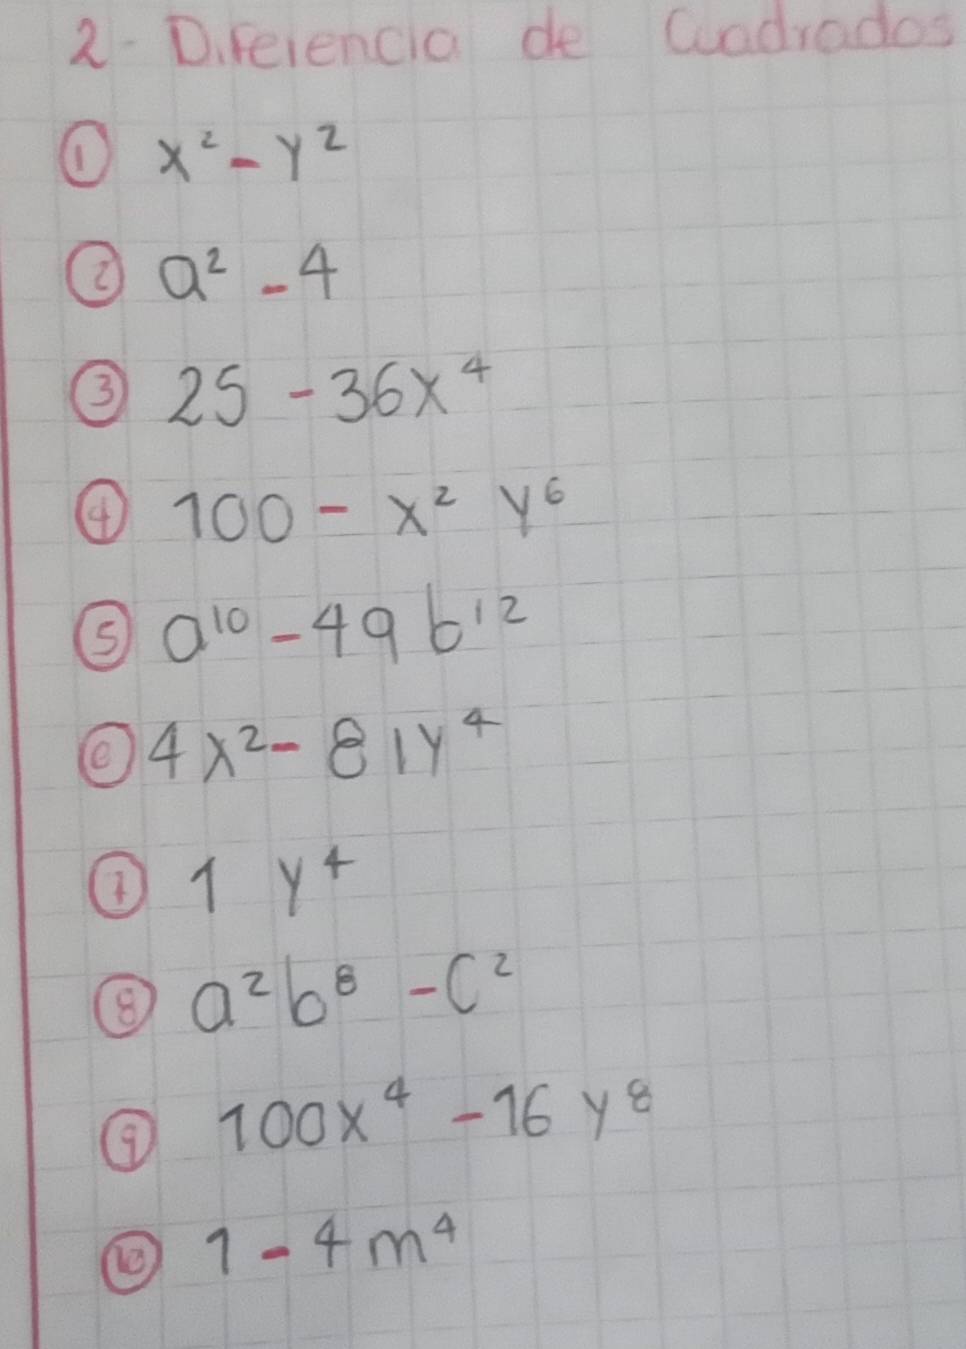 2- Diferencia de Cuadrados
① x² - y²
② a² - 4
③ 25 - 36x⁴
④ 100 - x² y⁶
⑤ a¹⁰ - 49 b¹²
⑥ 4x² - 81y⁴
⑦ 1 y⁴
⑧ a²b⁸ - c²
⑨ 100x⁴ - 16 y⁸
⑩ 1 - 4m⁴